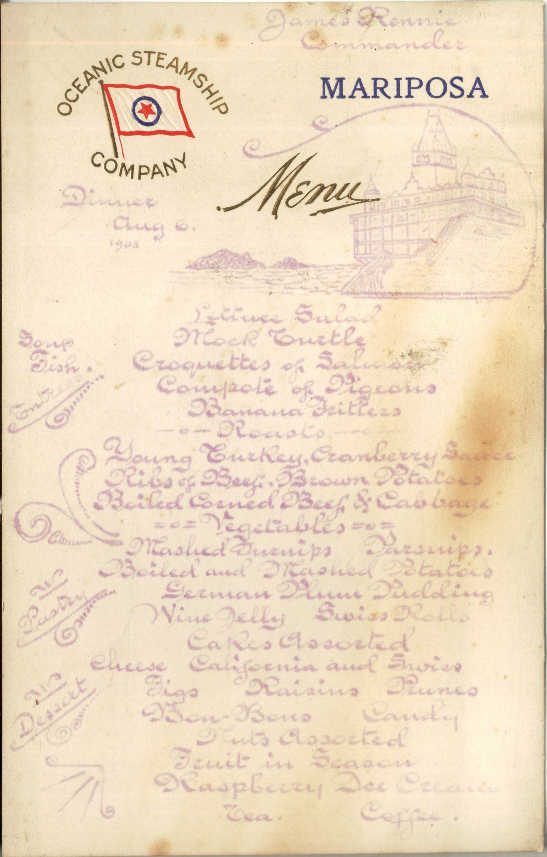 James Rennie
Commander
OCEANIC STEAMSHIP
COMPANY
MARIPOSA
Menu
Dinner
Aug 6.
1903
Lettuce Salad
Soup Mock Turtle
Fish. Croquettes of Salmon
Entrees Compote of Pigeons
Banana Fritters
-o- Roasts -o-
Young Turkey, Cranberry Sauce
Ribs of Beef, Brown Potatoes
Boiled Corned Beef & Cabbage
-o- Vegetables -o-
Mashed Turnips Parsnips.
Boiled and Mashed Potatoes
Pastry German Plum Pudding
Wine Jelly Swiss Rolls
Cakes Assorted
Cheese California and Swiss
Dessert Figs Raisins Prunes
Bon-Bons Candy
Nuts Assorted
Fruit in Season
Raspberry Ice Cream
Tea. Coffee.